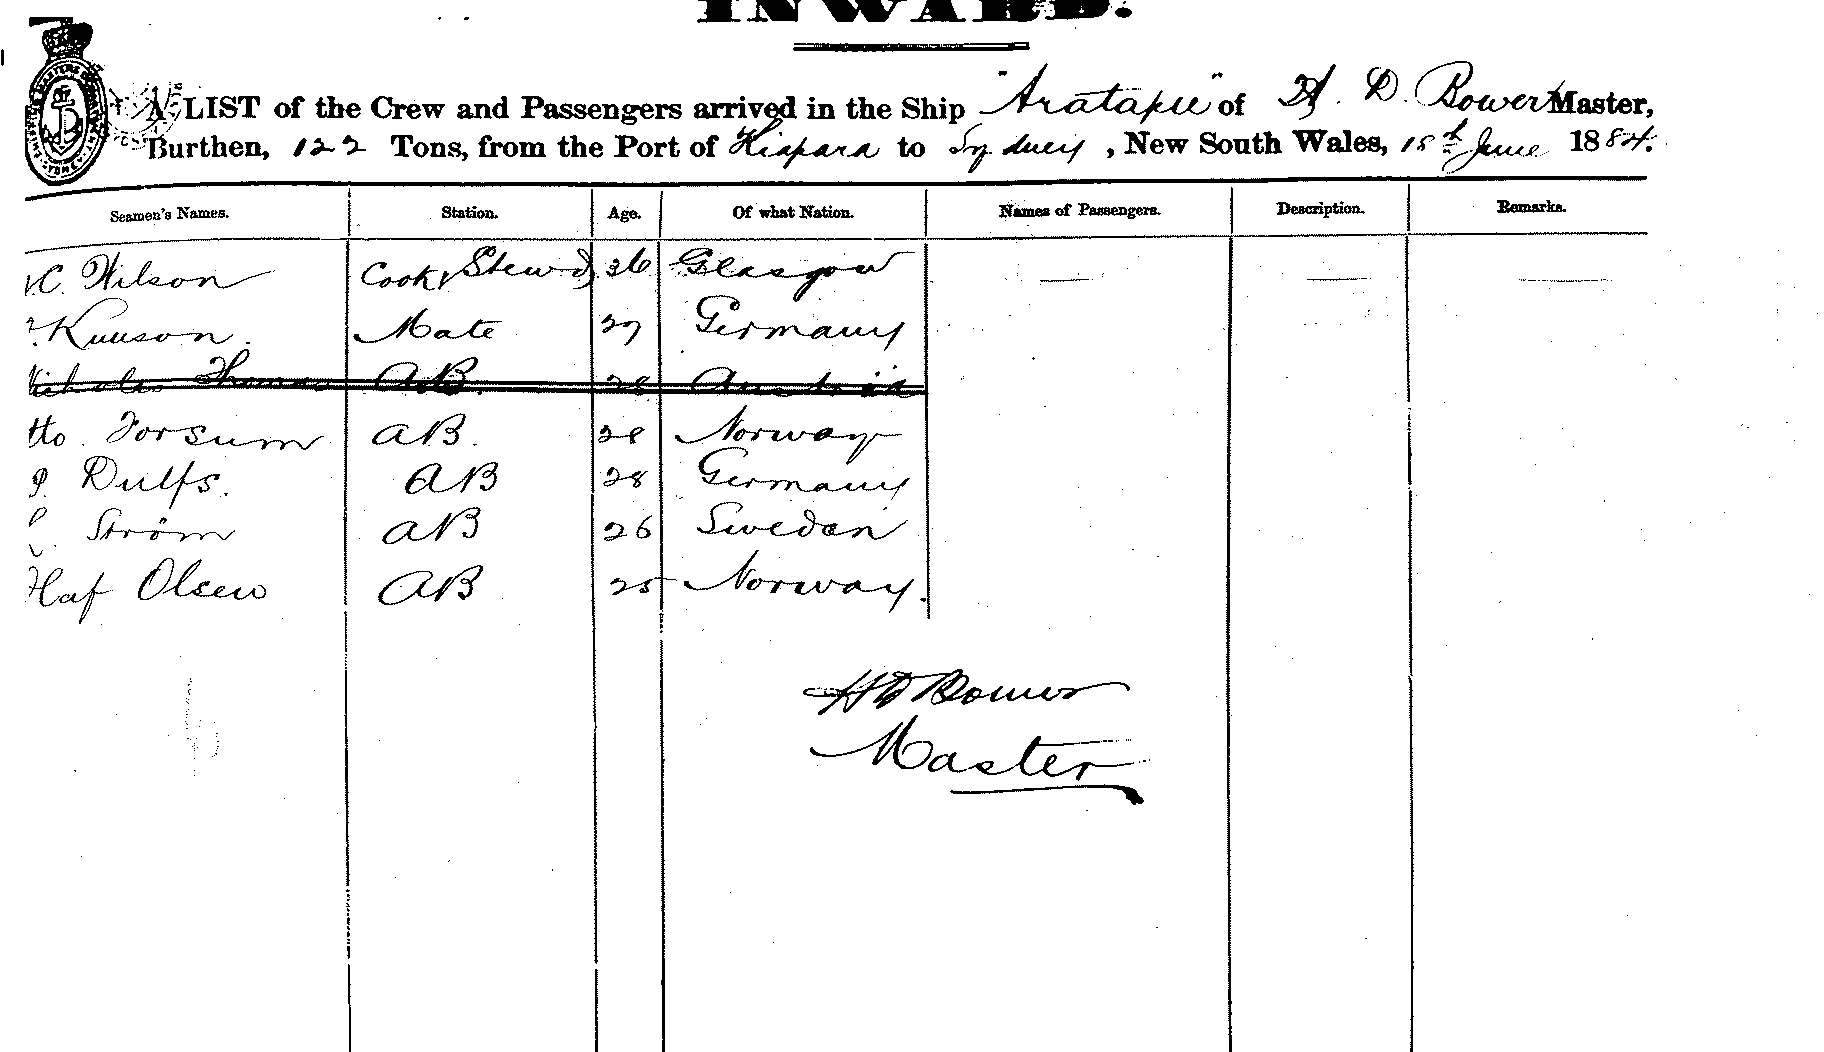 INWARD.
A LIST of the Crew and Passengers arrived in the Ship "Aratapu" of H. D. Bower Master,
Burthen, 122 Tons, from the Port of Kiapara to Sydney, New South Wales, 18th June 1884.
Seamen's Names. Station. Age. Of what Nation. Names of Passengers. Description. Remarks.
C. Wilson Cook & Stewd 36 Glasgow — — —
Knuson. Mate 27 Germany
Nicholas Thomas AB. 28 Austria
tto Forsum AB. 28 Norway
P. Dulfs. AB 28 Germany
Strøm AB 26 Sweden
Olaf Olsen AB 25 Norway.
HD Bower
Master